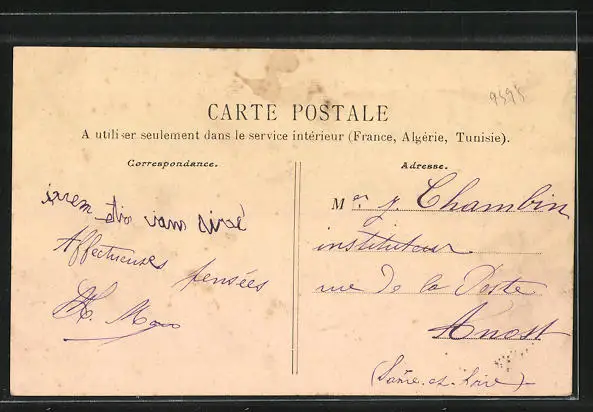 9595
CARTE POSTALE
A utiliser seulement dans le service intérieur (France, Algérie, Tunisie).
Correspondance.
Adresse.
Affectueuses
pensées
Mer J. Chambin
instituteur
rue de la Poste
Anost
(Saône-et-Loire)